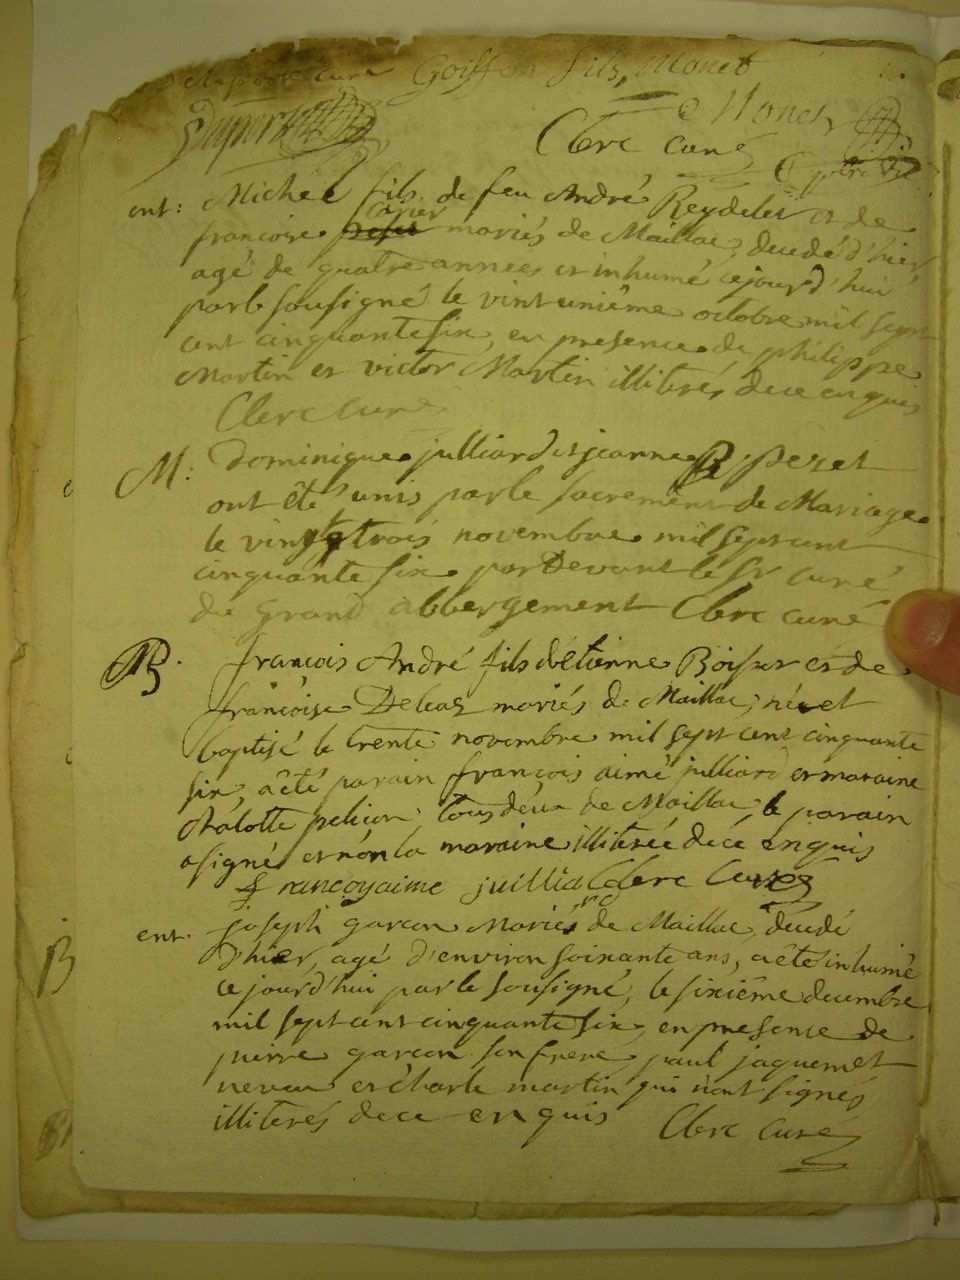 curé Goiffon fils, Monet
Monet
Clerc curé
ent: Michel fils de feu André Reydelet et de
carrier
francoise mariés de Maillac, decedé d'hier
agé de quatre années et inhumé cejourd'hui
par le sousigné le vint unième octobre mil sept
cent cinquante six, en presence de philippe
Martin et victor Martin illiterés de ce enquis
Clerc curé
M: Dominique julliard et jeanne B. peret
ont été unis par le sacrement de Mariage
le vingt trois novembre mil sept cent
cinquante six par Devant le Sr curé
de Grand abbergement Clerc curé
B. françois André fils d'étienne Boisson et de
françoise Deleaz mariés de Maillac, né et
baptisé le trente novembre mil sept cent cinquante
six, a été parain françois aimé julliard et maraine
chalotte pelicon, tous deux de Maillac, le parain
a signé et non la maraine illiterée de ce enquis
francoyaime juilliard Clerc Curé
ent. joseph garcon Mariés de Maillac, decedé
d'hier, agé d'environ soixante ans, a été inhumé
ce jourd'hui par le sousigné, le sixième decembre
mil sept cent cinquante six, en presence de
pierre garcon son frere, paul jaquemet
neveu et charle martin qui n'ont signés
illiterés de ce enquis Clerc curé
B